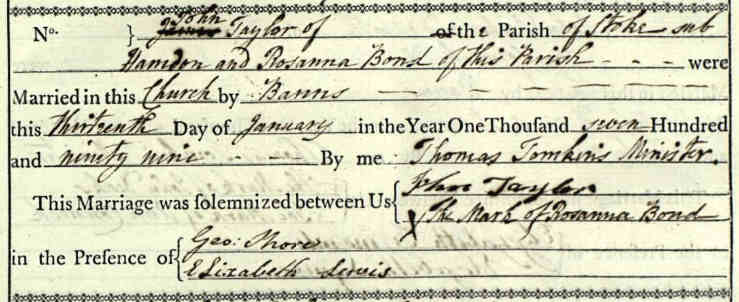 John
No. } James Taylor of of the Parish of Stoke sub
Hamdon and Rosanna Bond of this Parish - - - were
Married in this Church by Banns - - - - - -
this thirteenth Day of January in the Year One Thousand seven Hundred
and ninity nine - - By me Thomas Tomkins Minister.
This Marriage was solemnized between Us { John Taylor
X The Mark of Rosanna Bond
in the Presence of { Geo: Shore
Elizabeth Lewis